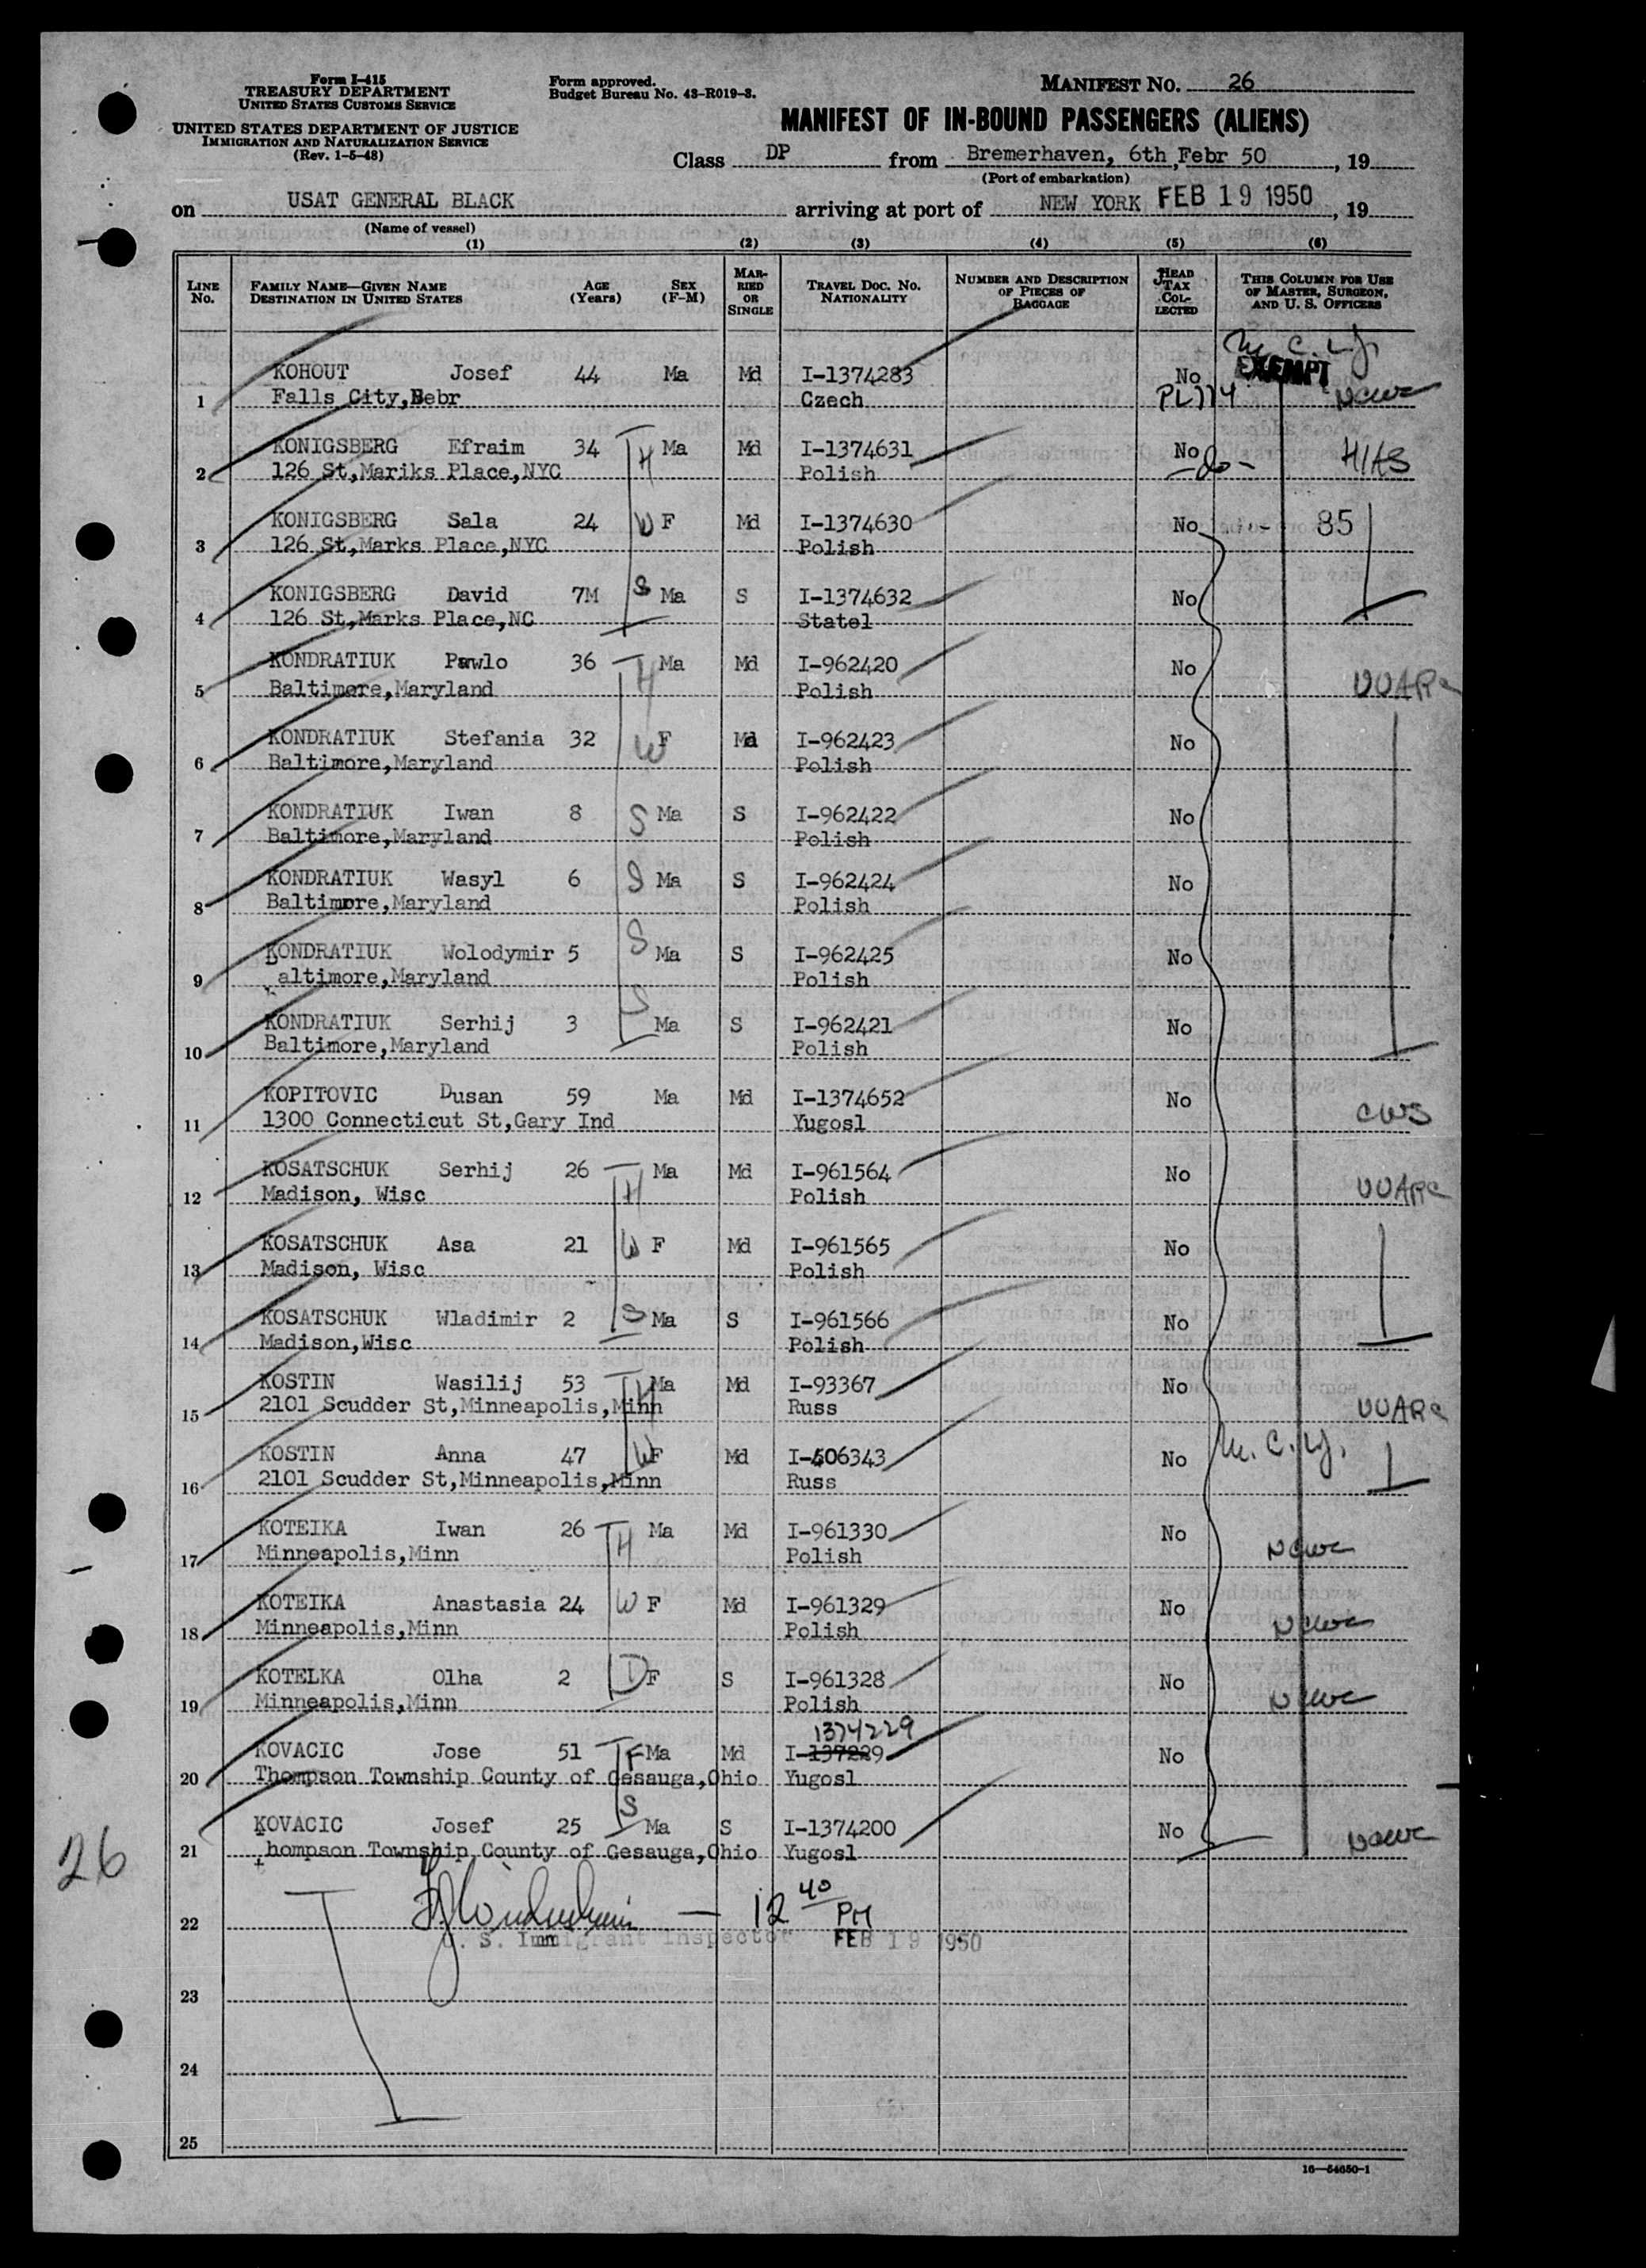 Form I-415
TREASURY DEPARTMENT
UNITED STATES CUSTOMS SERVICE
UNITED STATES DEPARTMENT OF JUSTICE
IMMIGRATION AND NATURALIZATION SERVICE
(Rev. 1-5-48)
Form approved.
Budget Bureau No. 43-R019-3.
MANIFEST NO. 26
MANIFEST OF IN-BOUND PASSENGERS (ALIENS)
Class DP from Bremerhaven, 6th, Febr 50, 19
(Port of embarkation)
on USAT GENERAL BLACK arriving at port of NEW YORK FEB 19 1950, 19
(Name of vessel)
(1) (2) (3) (4) (5) (6)
LINE No. FAMILY NAME—GIVEN NAME DESTINATION IN UNITED STATES AGE (Years) SEX (F-M) MARRIED OR SINGLE TRAVEL DOC. NO. NATIONALITY NUMBER AND DESCRIPTION OF PIECES OF BAGGAGE HEAD TAX COLLECTED THIS COLUMN FOR USE OF MASTER, SURGEON, AND U. S. OFFICERS
KOHOUT Josef 44 Ma Md I-1374283 No EXEMPT
1 Falls City, Nebr Czech PL774 NCWC
KONIGSBERG Efraim 34 H Ma Md I-1374631 No
2 126 St,Mariks Place,NYC Polish -do- HIAS
KONIGSBERG Sala 24 W F Md I-1374630 No 85
3 126 St,Marks Place,NYC Polish
KONIGSBERG David 7M S Ma S I-1374632 No
4 126 St,Marks Place,NC Statel
KONDRATIUK Pawlo 36 H Ma Md I-962420 No
5 Baltimore,Maryland Polish UUARC
KONDRATIUK Stefania 32 W F Md I-962423 No
6 Baltimore,Maryland Polish
KONDRATIUK Iwan 8 S Ma S I-962422 No
7 Baltimore,Maryland Polish
KONDRATIUK Wasyl 6 S Ma S I-962424 No
8 Baltimore,Maryland Polish
KONDRATIUK Wolodymir 5 S Ma S I-962425 No
9 Baltimore,Maryland Polish
KONDRATIUK Serhij 3 S Ma S I-962421 No
10 Baltimore,Maryland Polish
KOPITOVIC Dusan 59 Ma Md I-1374652 No
11 1300 Connecticut St,Gary Ind Yugosl CWS
KOSATSCHUK Serhij 26 H Ma Md I-961564 No
12 Madison, Wisc Polish UUARC
KOSATSCHUK Asa 21 W F Md I-961565 No
13 Madison, Wisc Polish
KOSATSCHUK Wladimir 2 S Ma S I-961566 No
14 Madison,Wisc Polish
KOSTIN Wasilij 53 H Ma Md I-93367 No
15 2101 Scudder St,Minneapolis,Minn Russ UUARC
KOSTIN Anna 47 W F Md I-606343 No
16 2101 Scudder St,Minneapolis,Minn Russ
KOTEIKA Iwan 26 H Ma Md I-961330 No
17 Minneapolis,Minn Polish NCWC
KOTEIKA Anastasia 24 W F Md I-961329 No
18 Minneapolis,Minn Polish NCWC
KOTELKA Olha 2 D F S I-961328 No
19 Minneapolis,Minn Polish NCWC
1374229
KOVACIC Jose 51 F Ma Md I-137229 No
20 Thompson Township County of Gesauga,Ohio Yugosl
KOVACIC Josef 25 S Ma S I-1374200 No
21 Thompson Township County of Gesauga,Ohio Yugosl NCWC
26
22 12 40 PM
U. S. Immigrant Inspector FEB 19 1950
23
24
25
16—54650-1